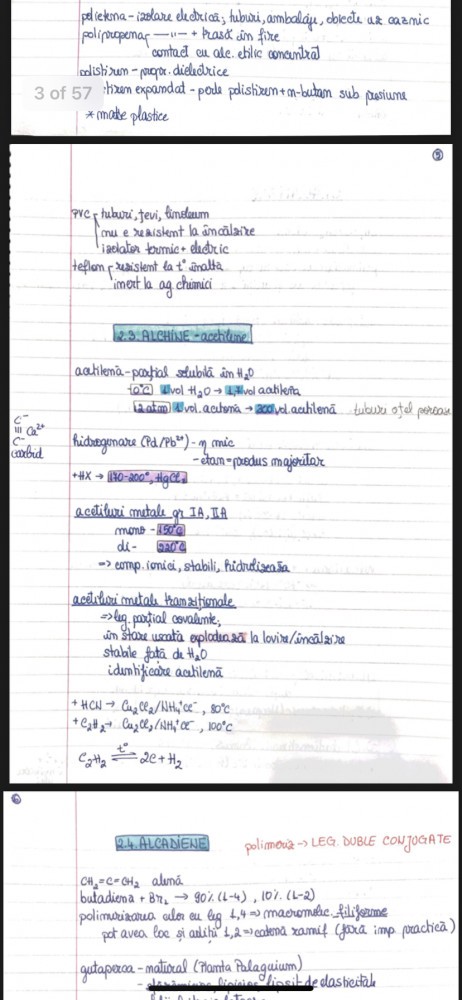 polietena - izolare electrică, tuburi, ambalaje, obiecte uz casnic
polipropena —"— + trase în fire
contact cu alc. etilic concentrat
polistiren - propr. dielectrice
3 of 57
stiren expandat - perle polistiren + n-butan sub presiune
* mat. plastice
5
PVC tuburi, țevi, linoleum
nu e rezistent la încălzire
izolator termic + electric
teflon rezistent la t° înaltă
inert la ag chimici
2.3. ALCHINE - acetilene
acetilenă - parțial solubilă în H₂O
0°C 1 vol H₂O → 1,7 vol acetilenă
12 atm 1 vol. acetonă → 300 vol. acetilenă tuburi oțel poroase
C⁻
||| Ca²⁺
C⁻
carbid
hidrogenare (Pd/Pb²⁺) - η mic
- etan = produs majoritar
+HX → 170-200°, HgCl₂
acetiluri metale gr IA, IIA
mono - 150°C
di - 220°C
=> comp. ionici, stabili, hidrolizează
acetiluri metale tranziționale
=> leg. parțial covalente,
în stare uscată explodează la lovire/încălzire
stabile față de H₂O
identificare acetilenă
+ HCN → Cu₂Cl₂/NH₄⁺Cl⁻, 80°C
+ C₂H₂ → Cu₂Cl₂/NH₄⁺Cl⁻, 100°C
C₂H₂ ⇌ t° 2C + H₂
6
2.4. ALCADIENE polimeriz → LEG. DUBLE CONJUGATE
CH₂=C=CH₂ alenă
butadiena + Br₂ → 90% (1-4), 10% (1-2)
polimerizarea celor cu leg 1,4 => macromolec. filiforme
pot avea loc și adiții 1,2 => catenă ramif (fără imp. practică)
gutaperca - material (Planta Palaquium)
lipsit de elasticitate